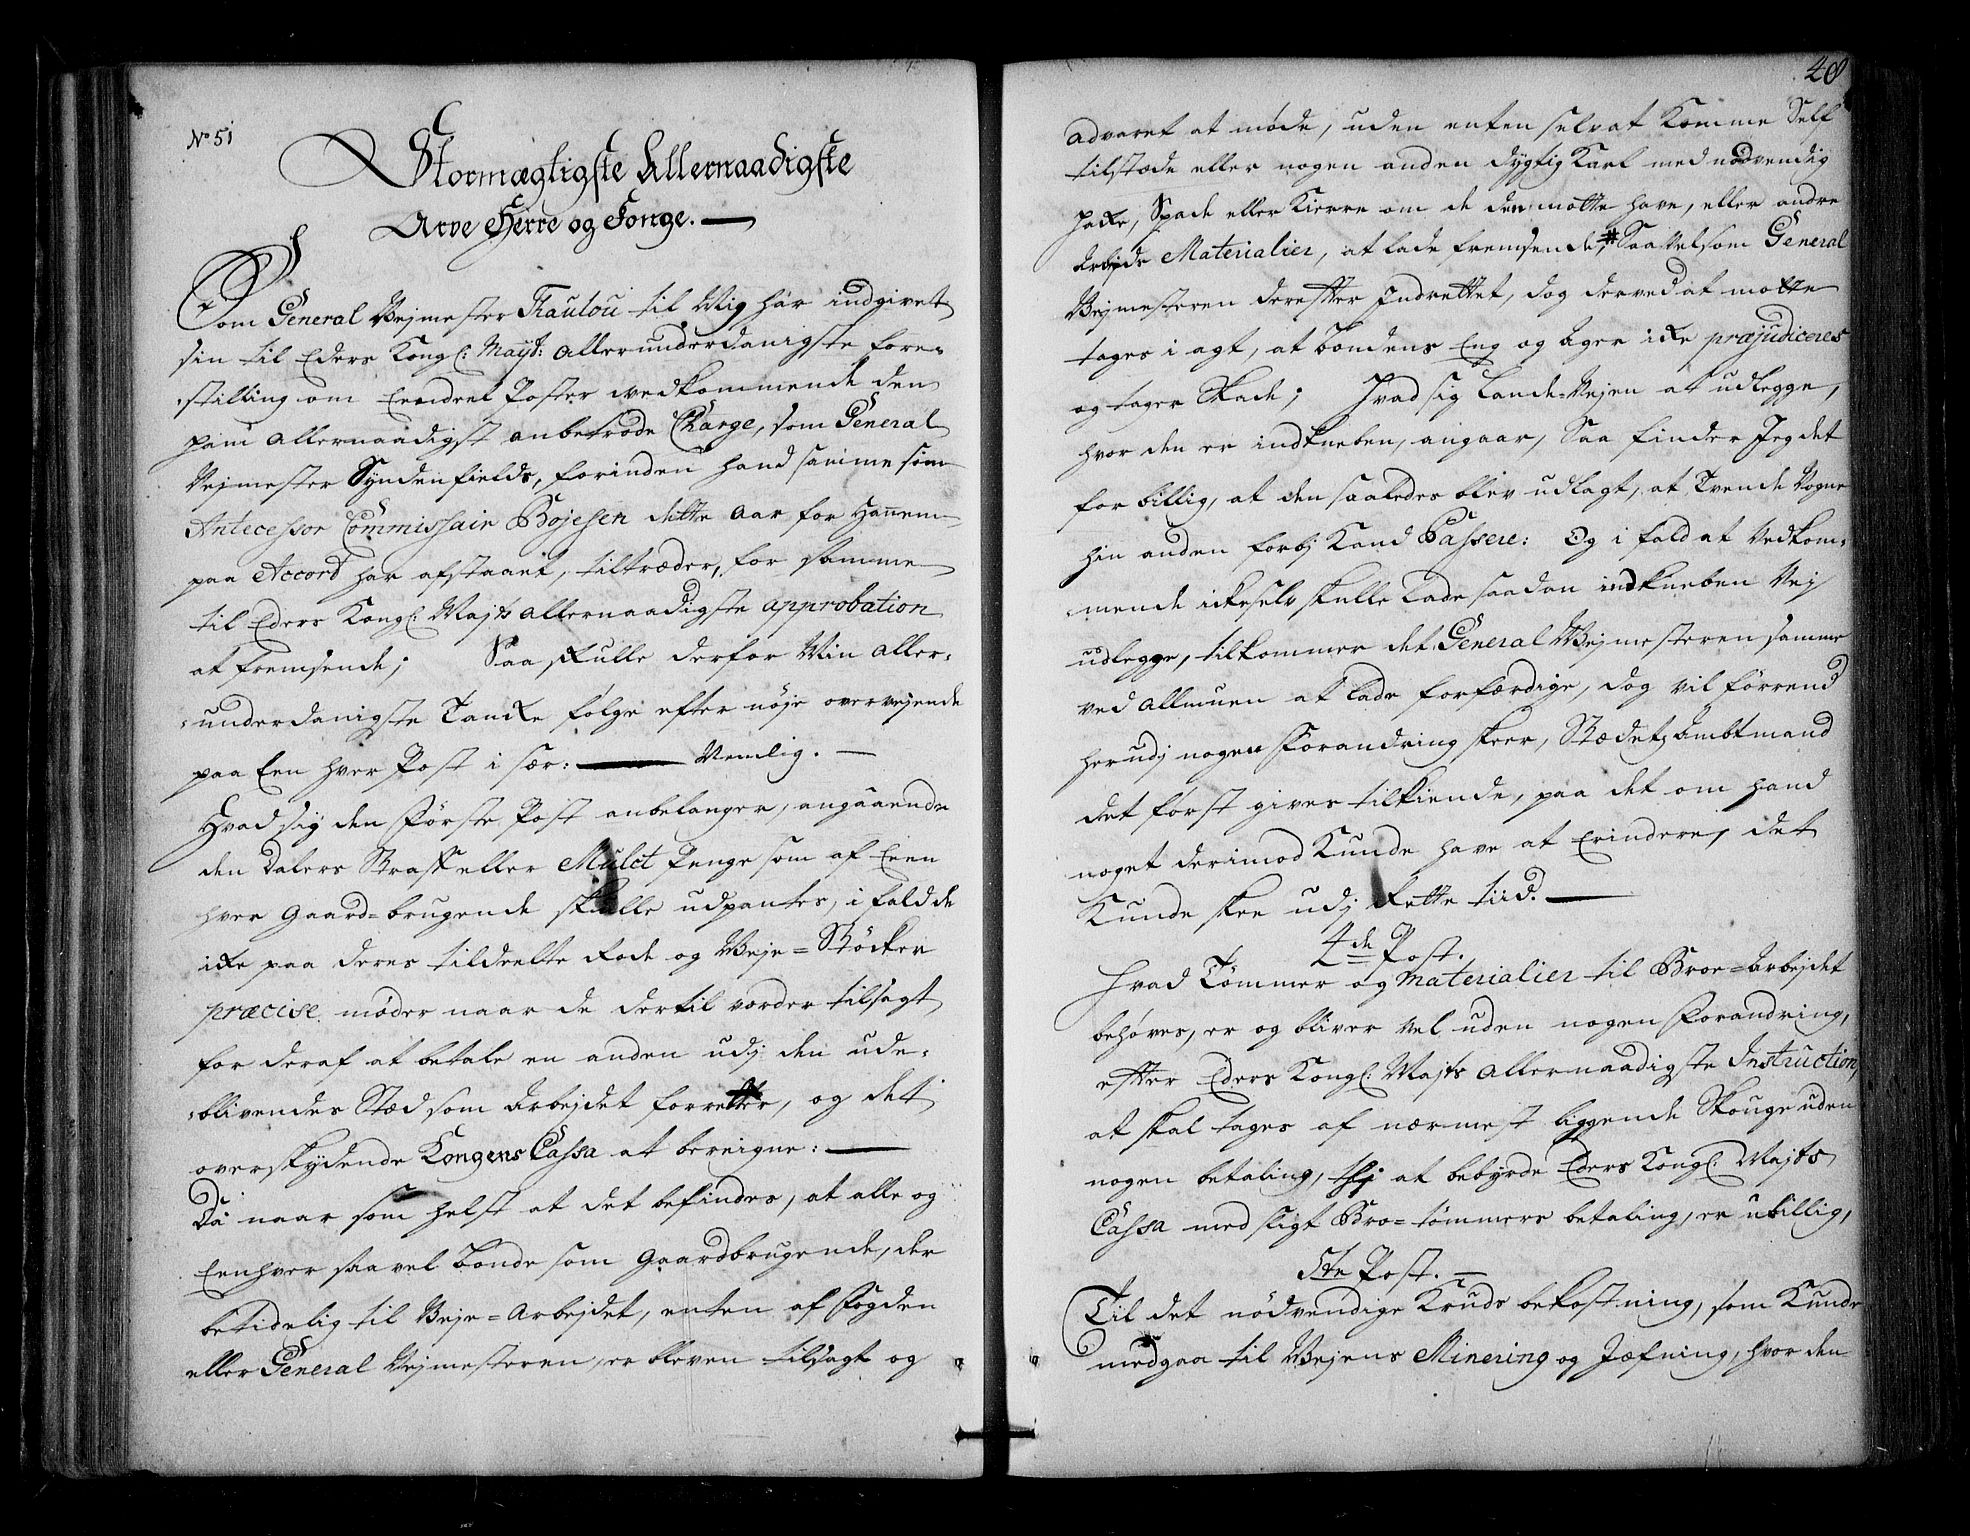 No 51
Stormægtigste Allernaadigste
Arve Herre og Konge. —
Som General Vejmester Rautou til Mig har indgivet
sin til Eders Kongl: Mayt: allerunderdanigste fore=
=stilling om Eendeel Poster vedkommende den
ham allernaadigst anbetrode Charge, som General
Vejmester Syndenfields, forinden hand samme som
Antecessor Commissair Bojesen dette Aar for Hannem
paa Accord har afstaaet, tiltræder, for samme
til Eders Kongl: Majts allernaadigste approbation
at fremsende; Saa skulle derfor Min aller=
=underdanigste Tancke følge efter nøje overvejende
paa Een hver Post i sær: — Nemlig. —
Hvad sig den Første Post anbelanger, angaaende
den Dalers Straff eller Mulct Penge som af Een
hver Gaard=brugende skulle udpantes, i fald de
icke paa deres tildeelte Rode og Veje=Støcker
præcise møder naar de dertil vorder tilsagt,
for deraf at betale en anden udj den ude=
=blivendes Stæd som Arbejdet forretter, og det
overskydende Kongens Cassa at bereigne: —
Da naar som helst at det befindes, at alle og
Eenhver saavel Bonde som Gaardbrugende, der
betidelig til Veje=Arbejdet, enten af Fogden
eller General Vejmesteren, er bleven tilsagt og
48
advaret at møde, uden enten selv at Komme Self
tilstæde eller nogen anden dygtig Karl med nødvendig
Hacke, Spade eller Kierre om de den motte have, eller andre
Arbejde Materialier, at lade fremsende, # Saa Vel som General
Vejmesteren derefter Indrettet, dog derved at motte
tages i agt, at bondens Eng og Ager icke præjudiceres
og tager Skade; Hvad sig Lande=Vejen at udlegge,
hvor den er indkneben, angaar, Saa finder Jeg det
for billig, at den saaledes blev udlagt, at Tvende Vogne
hin anden forbj Kand Passere: Og i fald at Vedkom=
=mende icke selv skulle lade saadan indkneben Vej
udlegge, tilkommer det General Vejmesteren samme
ved Allmuen at lade forfærdige, dog vil førrend
herudj nogen Forandring skeer, Stædets Ambtmand
det først gives tilkiende, paa det om hand
noget derimod Kunde have at Erindre, det
Kunde skee udj Rette tiid. —
4de Post.
Hvad Tømmer og Materialier til Broe=Arbejdet
behøves, er og bliver vel uden nogen Forandring,
efter Eders Kongl: Majts Allernaadigste Instruction,
at skal tages af nærmest liggende Skouge uden
nogen betaling, thj at bebyrde Eders Kongl: Majts
Cassa med sligt Bro=tømmers betaling, er ubillig,
5te Post. —
Til det nødvendige Kruds bekostning, som Kunde
medgaa til Vejens Minering og Jæfning, hvor den